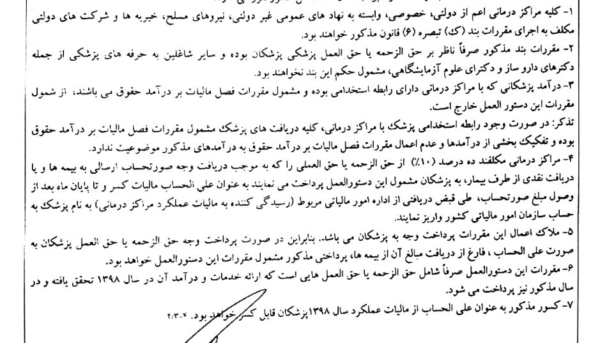 ۱- کلیه مراکز درمانی اعم از دولتی، خصوصی، وابسته به نهاد های عمومی غیر دولتی، نیروهای مسلح، خیریه ها و شرکت های دولتی
مکلف به اجرای مقررات بند (ک) تبصره (۶) قانون مذکور خواهند بود.
۲- مقررات بند مذکور صرفاً ناظر بر حق الزحمه یا حق العمل پزشکی پزشکان بوده و سایر شاغلین به حرفه های پزشکی از جمله
دکترهای دارو ساز و دکترای علوم آزمایشگاهی، مشمول حکم این بند نخواهند بود.
۳- درآمد پزشکانی که با مراکز درمانی دارای رابطه استخدامی بوده و مشمول مقررات فصل مالیات بر درآمد حقوق می باشند، از شمول
مقررات این دستور العمل خارج است.
تذکر: در صورت وجود رابطه استخدامی پزشک با مراکز درمانی، کلیه دریافت های پزشک مشمول مقررات فصل مالیات بر درآمد حقوق
بوده و تفکیک بخشی از درآمدها و عدم اعمال مقررات فصل مالیات بر درآمد حقوق به درآمدهای مذکور موضوعیت ندارد.
۴- مراکز درمانی مکلفند ده درصد (۱۰٪) از حق الزحمه یا حق العملی را که به موجب دریافت وجه صورتحساب ارسالی به بیمه ها و یا
دریافت نقدی از طرف بیمار، به پزشکان مشمول این دستورالعمل پرداخت می نمایند به عنوان علی الحساب مالیات کسر و تا پایان ماه بعد از
وصول مبلغ صورتحساب، طی قبض دریافتی از اداره امور مالیاتی مربوط (رسیدگی کننده به مالیات عملکرد مراکز درمانی) به نام پزشک به
حساب سازمان امور مالیاتی کشور واریز نمایند.
۵- ملاک اعمال این مقررات پرداخت وجه به پزشکان می باشد. بنابراین در صورت پرداخت وجه حق الزحمه یا حق العمل پزشکان به
صورت علی الحساب ، فارغ از دریافت مبالغ آن از بیمه ها، پرداختی مذکور مشمول مقررات این دستورالعمل خواهد بود.
۶- مقررات این دستورالعمل صرفاً شامل حق الزحمه یا حق العمل هایی است که ارائه خدمات و درآمد آن در سال ۱۳۹۸ تحقق یافته و در
سال مذکور نیز پرداخت می شود.
۷- کسور مذکور به عنوان علی الحساب از مالیات عملکرد سال ۱۳۹۸ پزشکان قابل کسر خواهد بود. ۲/۳۰۴